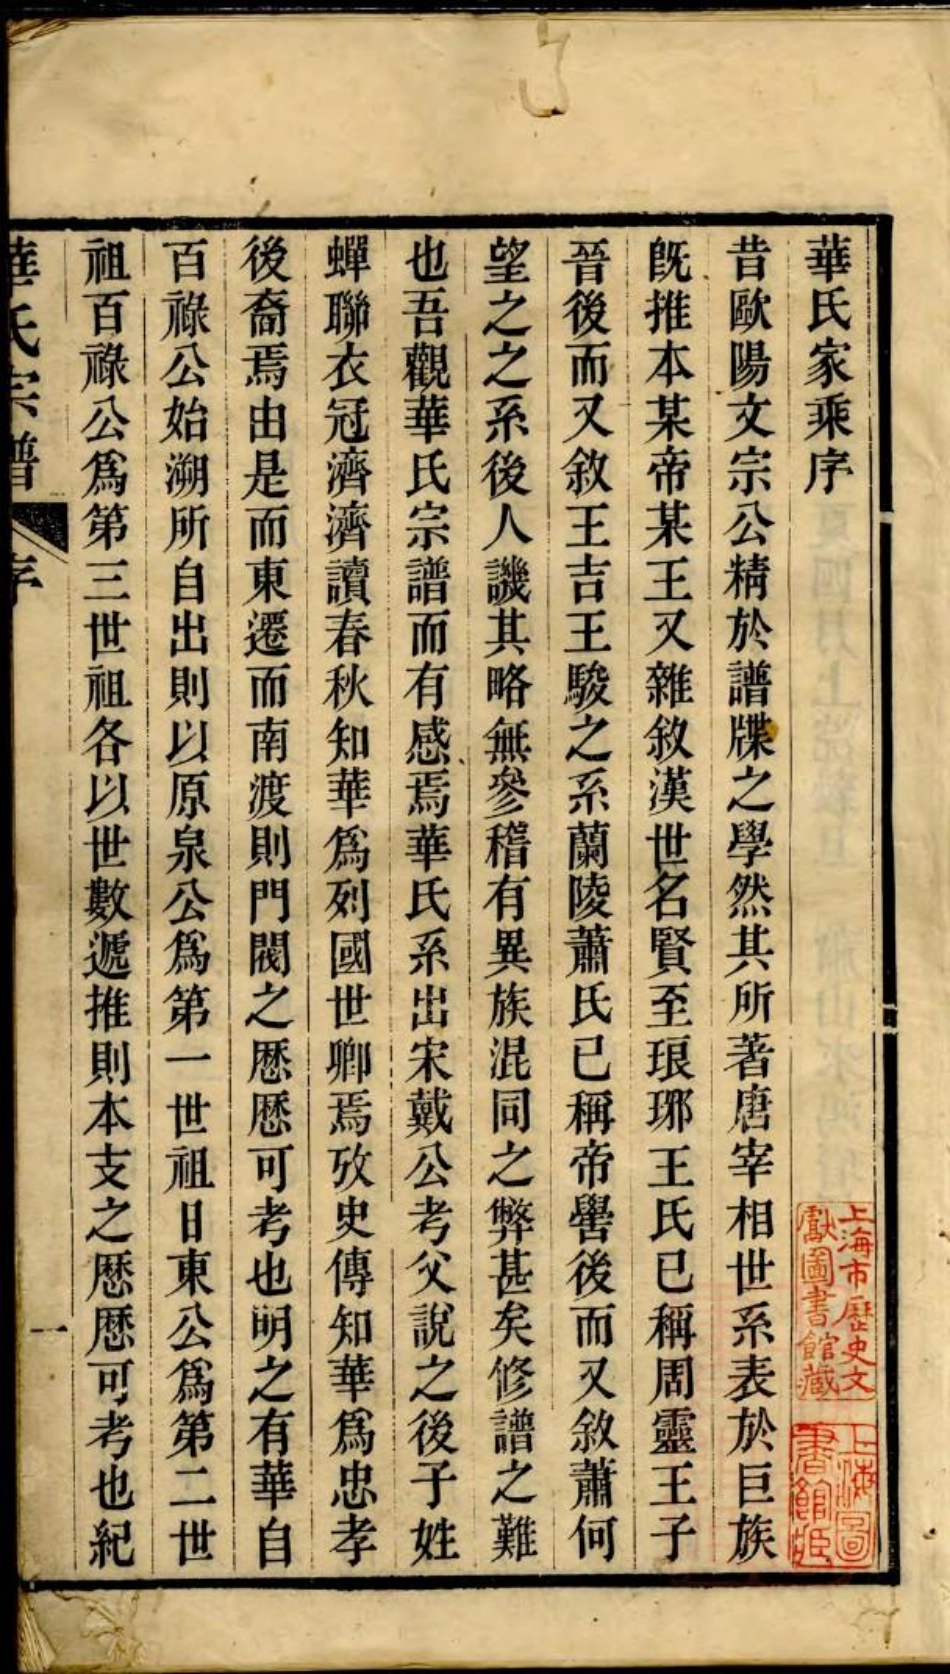 華氏家乘序
昔歐陽文宗公精於譜牒之學然其所著唐宰相世系表於巨族
旣推本某帝某王又雜敘漢世名賢至琅琊王氏已稱周靈王子
晉後而又敘王吉王駿之系蘭陵蕭氏已稱帝嚳後而又敘蕭何
望之之系後人譏其略無參稽有異族混同之弊甚矣修譜之難
也吾觀華氏宗譜而有感焉華氏系出宋戴公考父說之後子姓
蟬聯衣冠濟濟讀春秋知華爲列國世卿焉攷史傳知華爲忠孝
後裔焉由是而東遷而南渡則門閥之歷歷可考也明之有華自
百祿公始溯所自出則以原泉公爲第一世祖日東公爲第二世
祖百祿公爲第三世祖各以世數遞推則本支之歷歷可考也紀
華氏宗譜 序 一
上海市歷史文
獻圖書館藏
上海圖
書館